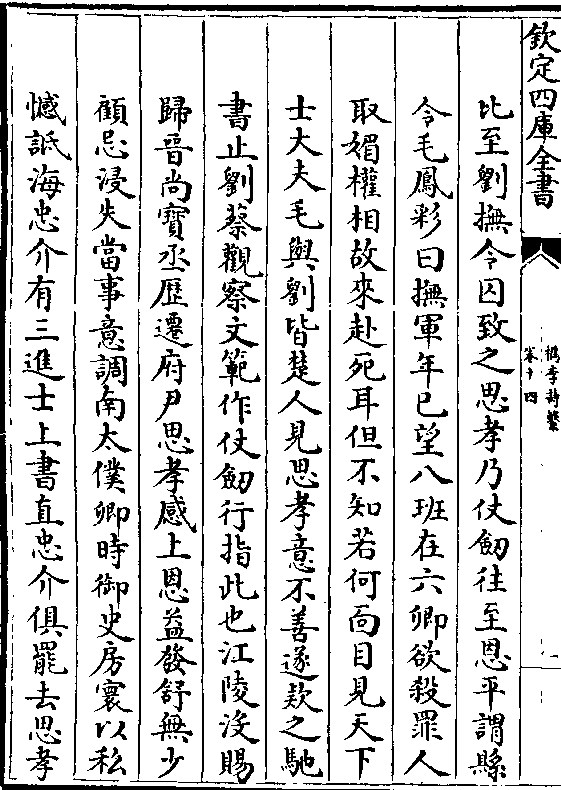 欽定四庫全書
檇李詩繫
卷十四
比至劉撫令囚致之思孝乃仗劒往至恩平謂縣
令毛鳳彩曰撫軍年已望八班在六卿欲殺罪人
取媚權相故來赴死耳但不知若何面目見天下
士大夫毛與劉皆楚人見思孝意不善遂欵之馳
書止劉蔡觀察文範作仗劒行指此也江陵沒賜
歸晉尚寶丞歴遷府尹思孝感上恩益發舒無少
顧忌浸失當事意調南太僕卿時御史房寰以私
憾詆海忠介有三進士上書直忠介俱罷去思孝